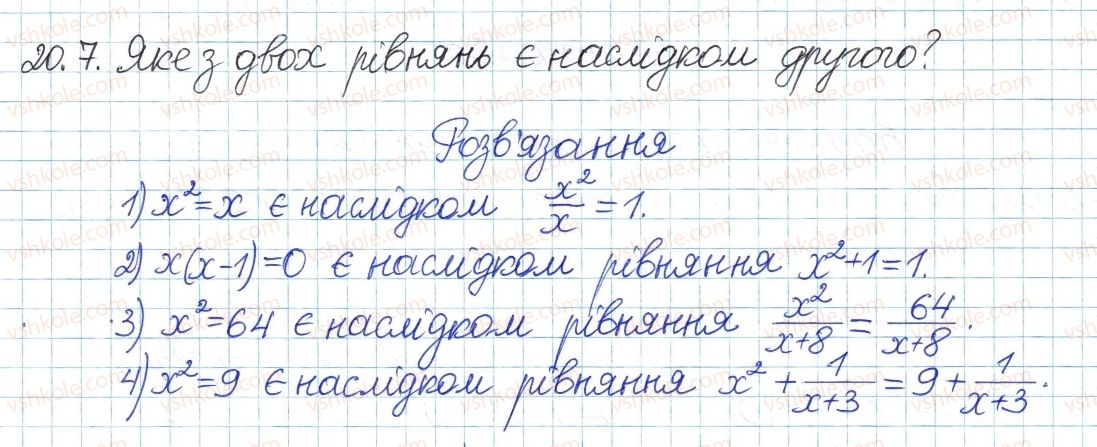 20.7. Яке з двох рівнянь є наслідком другого?
Розв'язання
1) x²=x є наслідком x²/x = 1.
2) x(x-1)=0 є наслідком рівняння x²+1=1.
3) x²=64 є наслідком рівняння x²/(x+8) = 64/(x+8).
4) x²=9 є наслідком рівняння x² + 1/(x+3) = 9 + 1/(x+3).